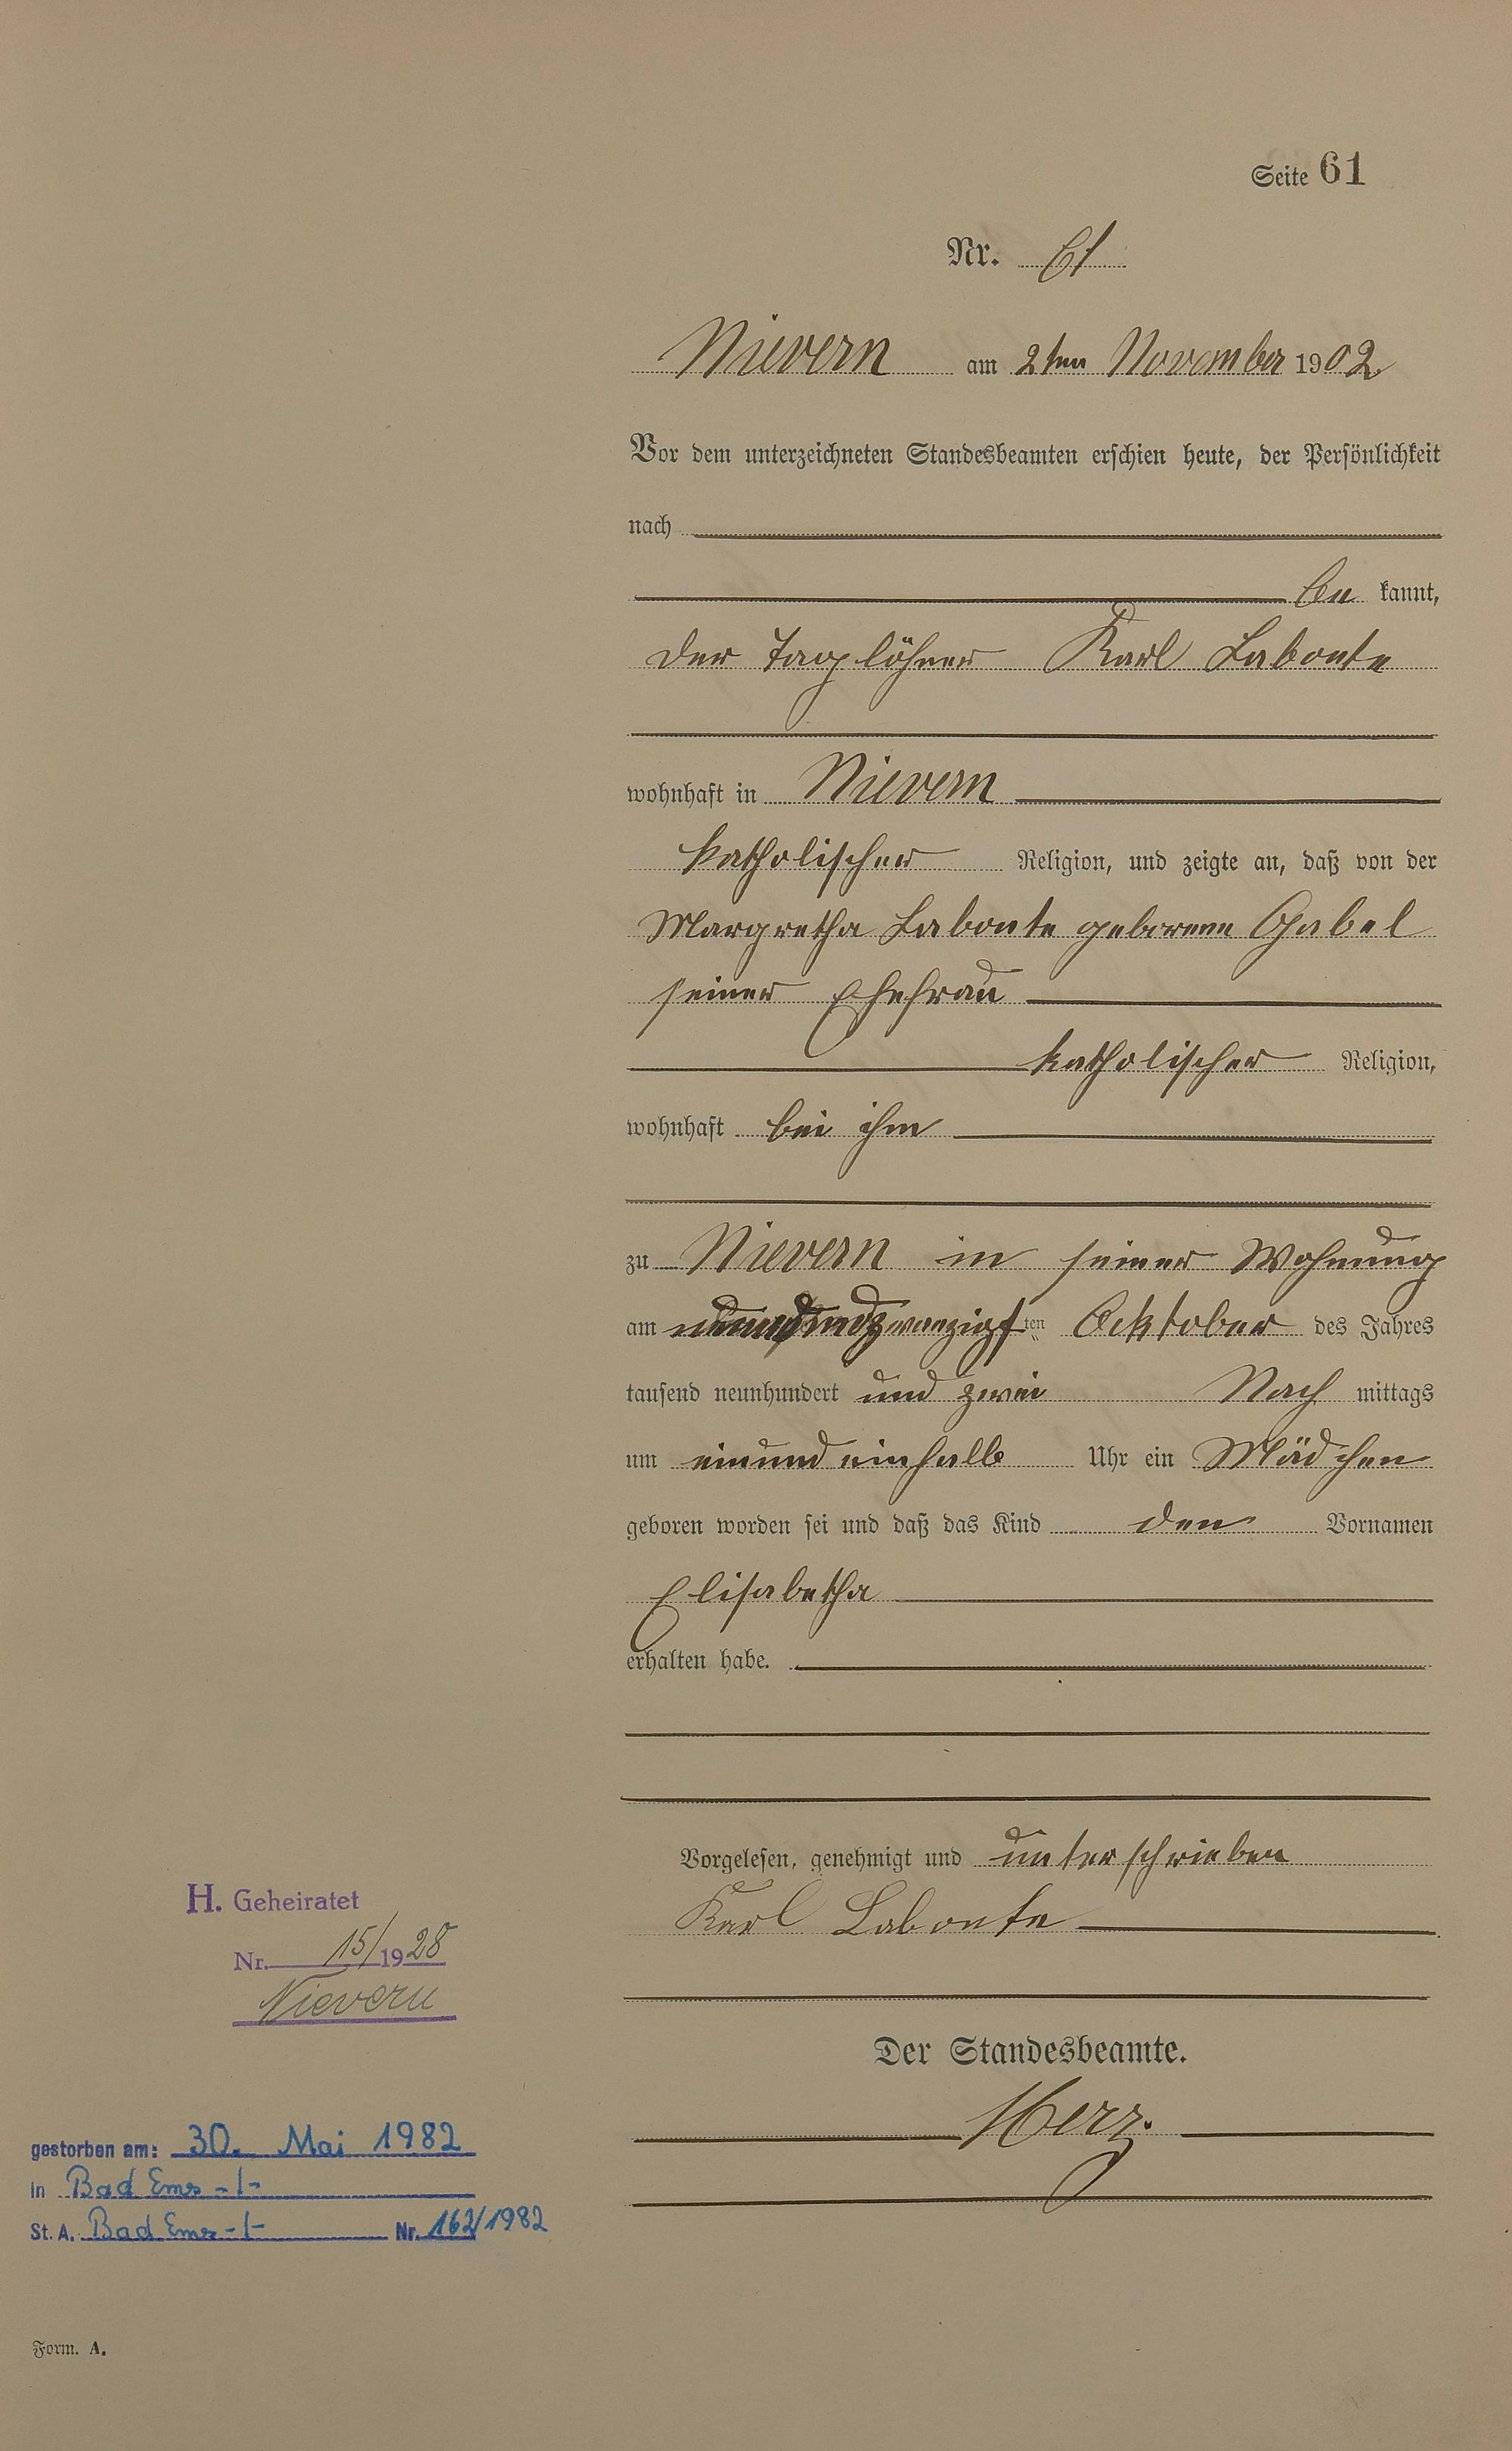 Seite 61
Nr. 61
Nievern am 2ten November 1902
Vor dem unterzeichneten Standesbeamten erschien heute, der Persönlichkeit
nach
be kannt,
der Taglöhner Karl Labonte
wohnhaft in Nievern
katholischer Religion, und zeigte an, daß von der
Margretha Labonte geborene Gabel
seiner Ehefrau
katholischer Religion,
wohnhaft bei ihm
zu Nievern in seiner Wohnung
am ten Ocktober des Jahres
tausend neunhundert und zwei Nach mittags
um einundeinhalb Uhr ein Mädchen
geboren worden sei und daß das Kind den Vornamen
Elisabetha
erhalten habe.
Vorgelesen, genehmigt und unterschrieben
Karl Labonte
Der Standesbeamte.
Herz.
H. Geheiratet
Nr. 15/1928
Nievern
gestorben am: 30. Mai 1982
in Bad Ems -1-
St. A. Bad Ems -1- Nr. 162/1982
Form. A.